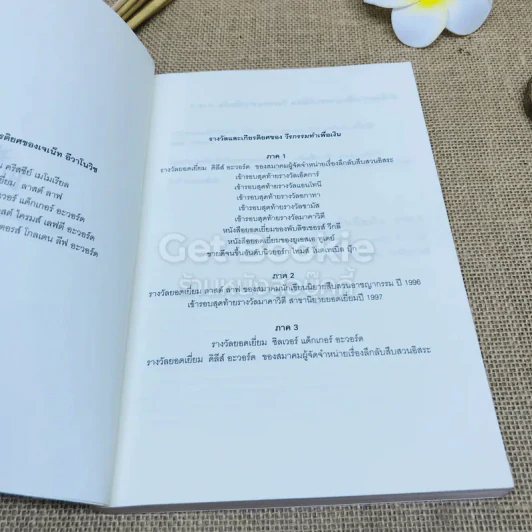 รติยศของเจเน็ท อีวาโนวิช
คริสซี่ย์ เมโมเรียล
ยี่ยม ลาสต์ ลาฟ
วอร์ แด็กเกอร์ อะวอร์ด
สต์ ไดรมส์ เลฟตี้ อะวอร์ด
ตอรส์ โกลเดน ลีฟ อะวอร์ด
รางวัลและเกียรติยศของ วีรกรรมทำเพื่อเงิน
ภาค 1
รางวัลยอดเยี่ยม ดิลีส์ อะวอร์ด ของสมาคมผู้จัดจำหน่ายเรื่องลึกลับสืบสวนอิสระ
เข้ารอบสุดท้ายรางวัลเอ็ดการ์
เข้ารอบสุดท้ายรางวัลแอนโทนี
เข้ารอบสุดท้ายรางวัลอกาทา
เข้ารอบสุดท้ายรางวัลชามัส
เข้ารอบสุดท้ายรางวัลมาคาวิตี
หนังสือยอดเยี่ยมของพับลิชเชอรส์ วีกลี
หนังสือยอดเยี่ยมของยูเอสเอ ทูเดย์
ขายดีจนขึ้นอันดับนิวยอร์ก ไทมส์ โนตเทเบิล บุ๊ก
Get Bookie
ร้านหนังสือเก็ทบุ๊คกี้
ภาค 2
รางวัลยอดเยี่ยม ลาสต์ ลาฟ ของสมาคมนักเขียนนิยายสืบสวนอาชญากรรม ปี 1996
เข้ารอบสุดท้ายรางวัลมาคาวิตี สาขานิยายยอดเยี่ยมปี 1997
ภาค 3
รางวัลยอดเยี่ยม ซิลเวอร์ แด็กเกอร์ อะวอร์ด
รางวัลยอดเยี่ยม ดิลีส์ อะวอร์ด ของสมาคมผู้จัดจำหน่ายเรื่องลึกลับสืบสวนอิสระ